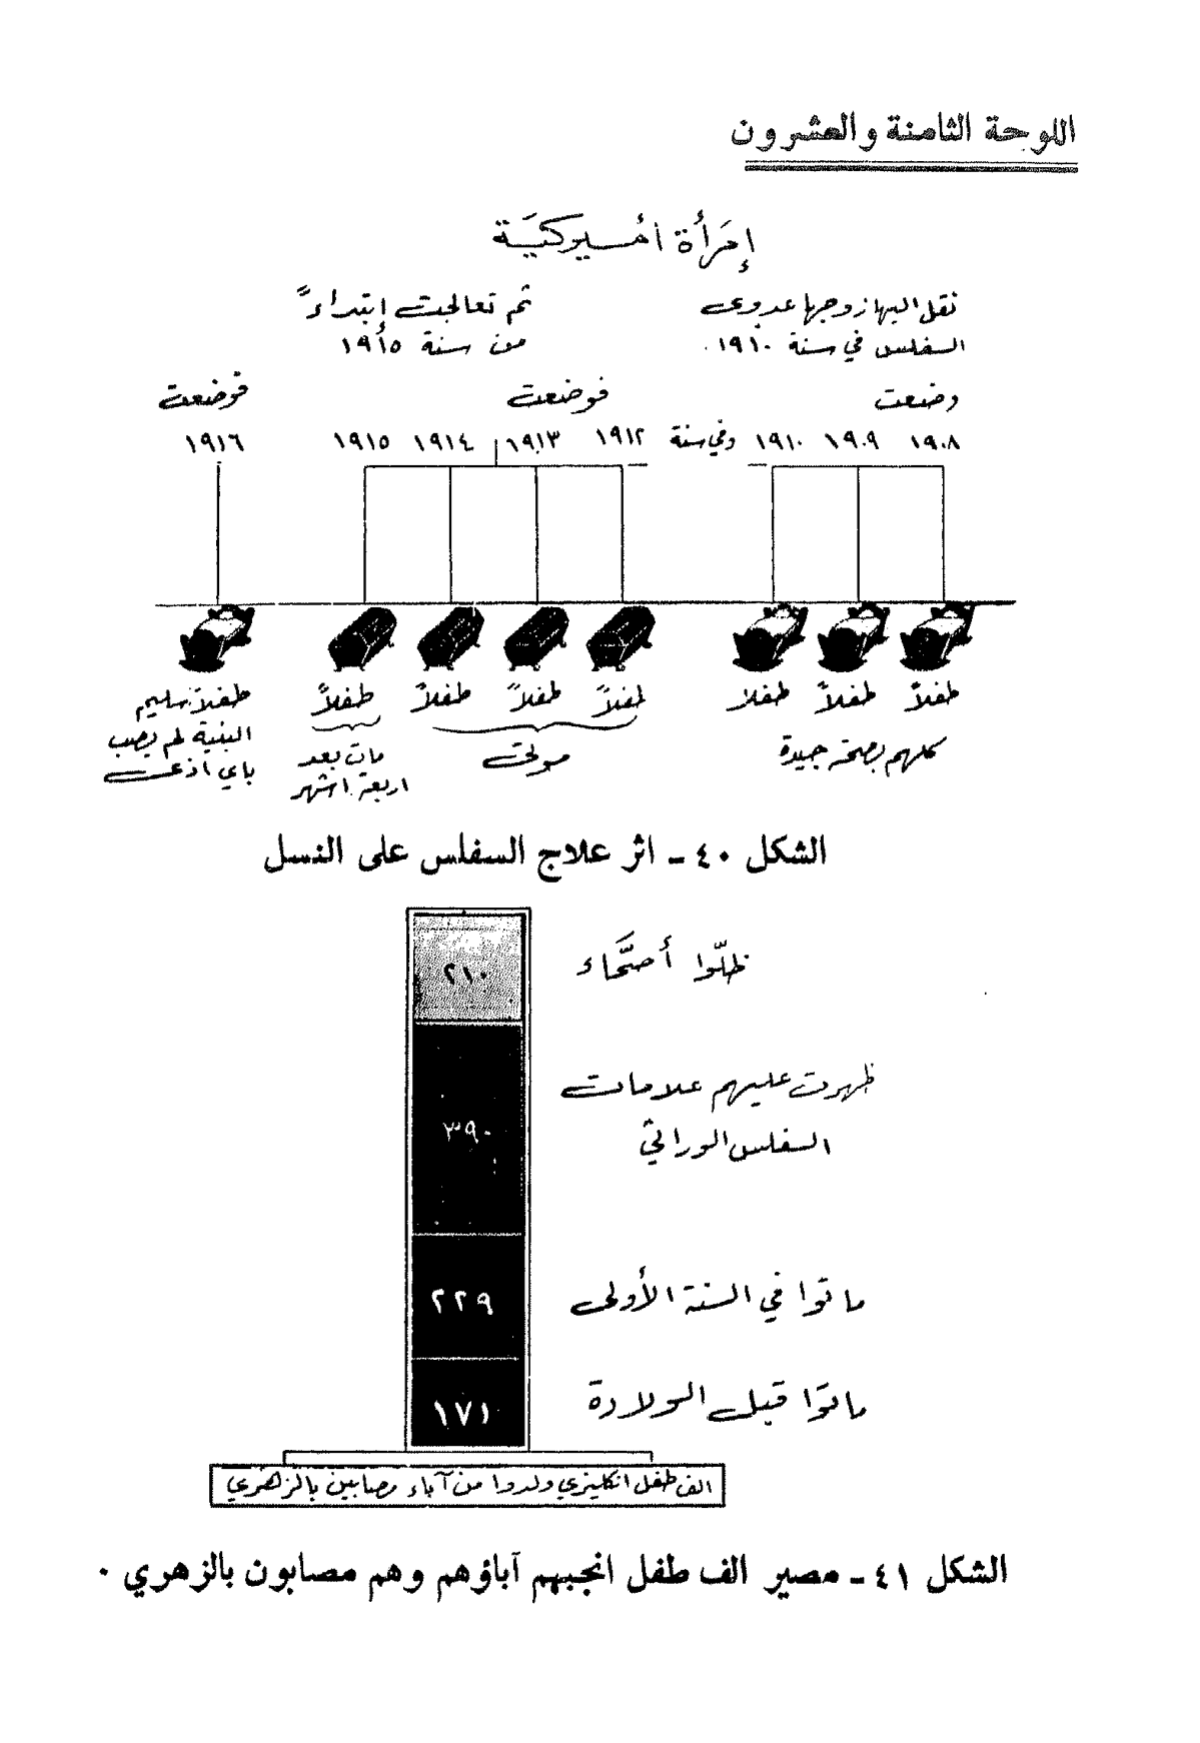 اللوحة الثامنة والعشرون
إمَرأَة أمْسيركيَة
نقل اليها زوجها عدوى
السفلس في سنة ١٩١٠.
ثم تعالجت إبتداءً
من سنة ١٩١٥
وضعت
فوضعت
فوضعت
١٩٠٨ ١٩٠٩ ١٩١٠ وفي سنة ١٩١٢ ١٩١٣ ١٩١٤ ١٩١٥ ١٩١٦
طفلاً طفلاً طفلا طفلاً طفلاً طفلاً طفلاً
كلهم بصحة جيدة
موتى
مات بعد
اربعة اشهر
طفلاً سليم
البنية لم يصب
باي اذى
الشكل ٤٠ - اثر علاج السفلس على النسل
٢١٠ ظلّوا أصحَّاء
٣٩٠ ظهرت عليهم علامات
السفلس الوراثي
٢٢٩ ماتوا في السنة الأولى
١٧١ ماتوا قبل الولادة
الف طفل انكليزي ولدوا من آباء مصابين بالزهري
الشكل ٤١ - مصير الف طفل انجبهم آباؤهم وهم مصابون بالزهري .